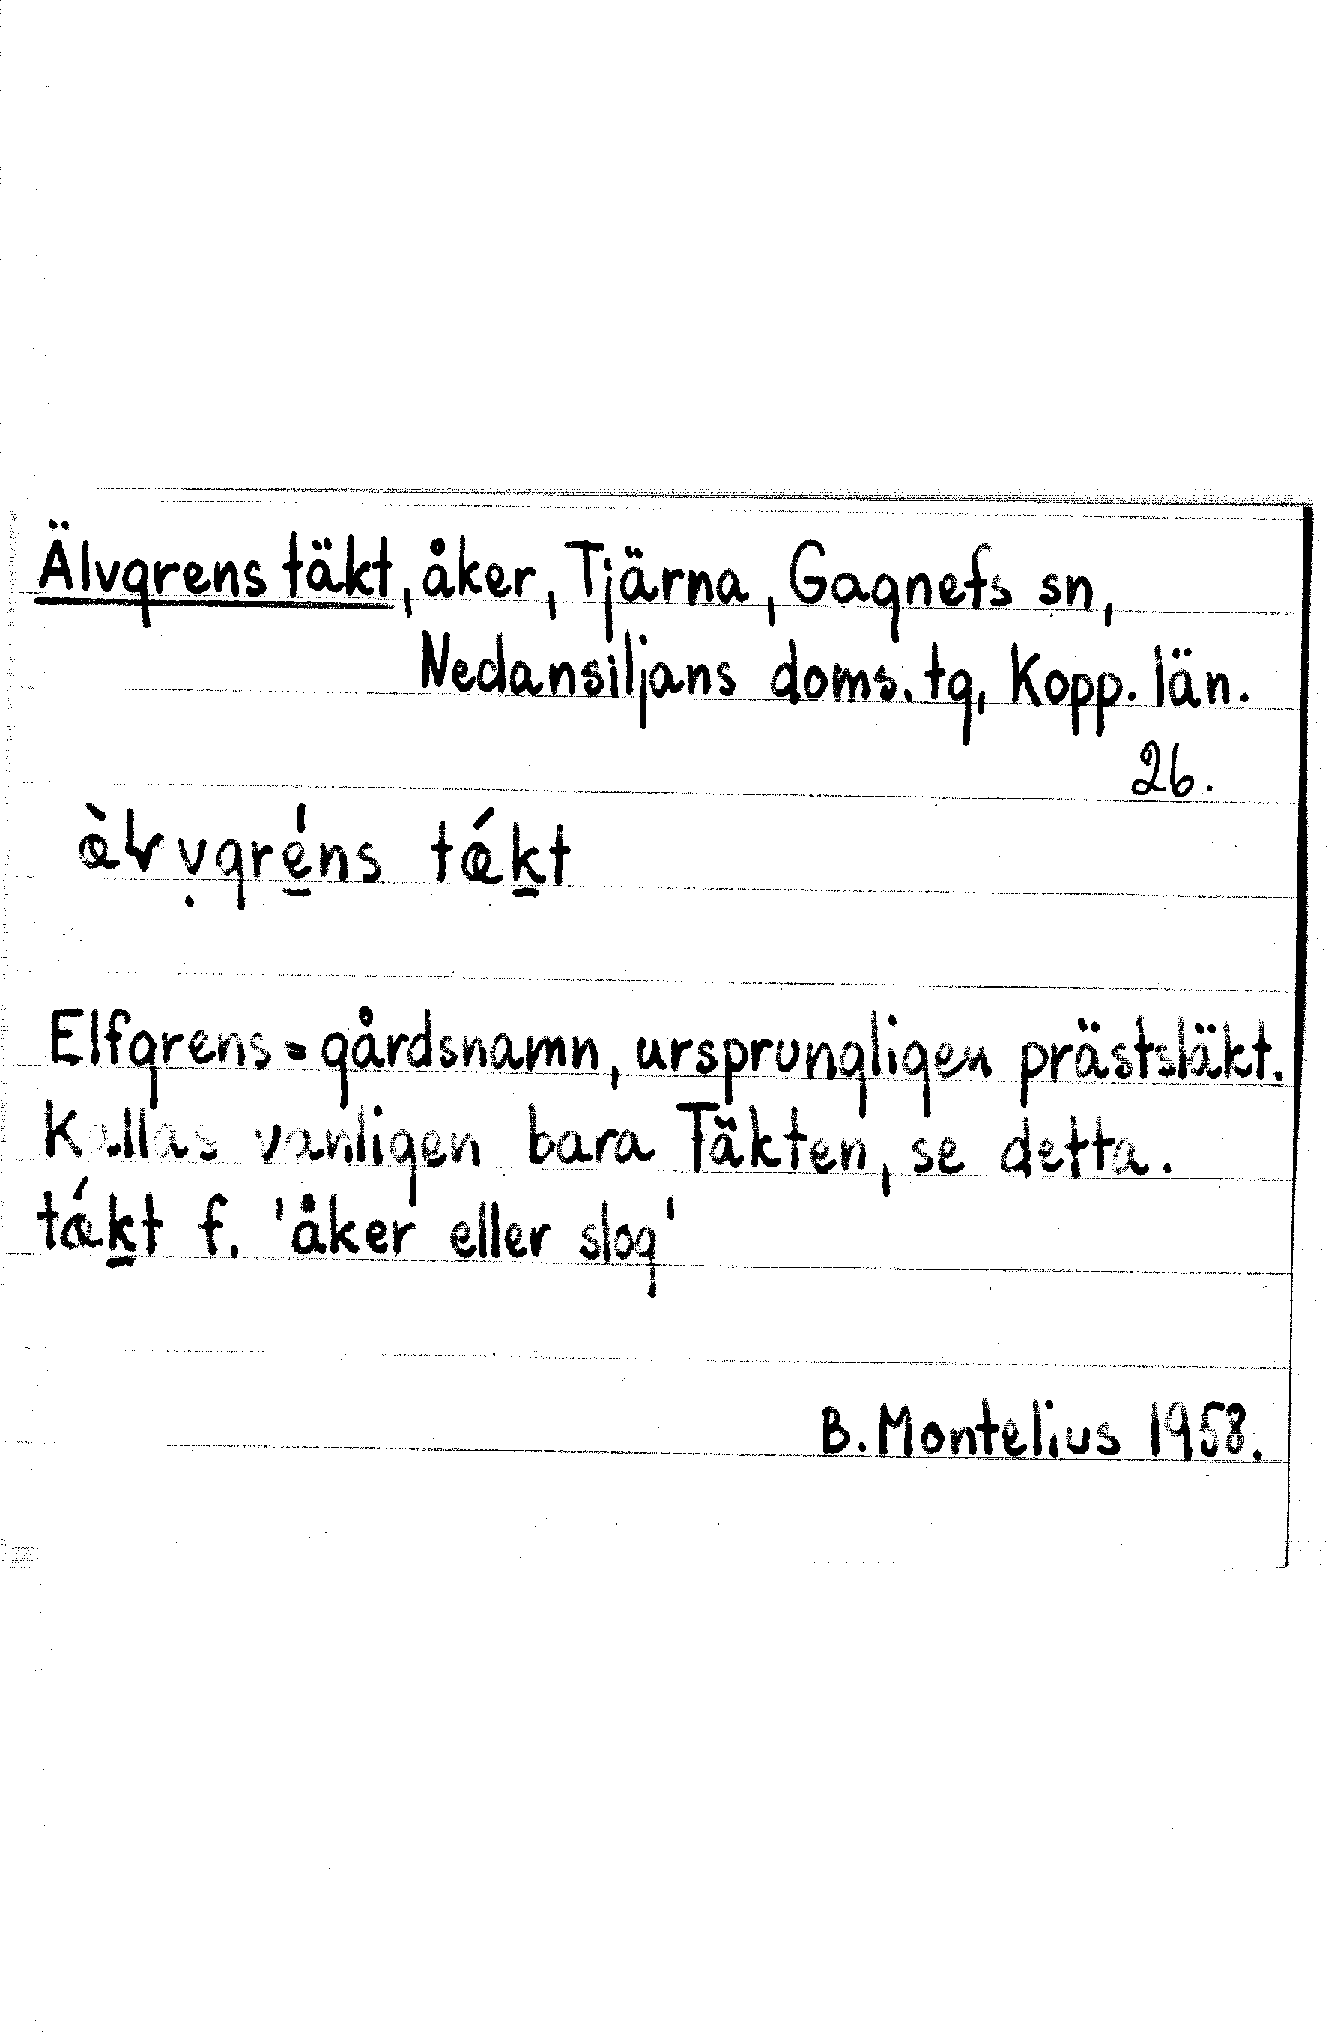 Älvgrens täkt, åker, Tjärna, Gagnefs sn,
Nedansiljans doms. tg, Kopp. län.
26.
æ̀lvgréns tǽkt
Elfgrens = gårdsnamn, ursprungligen prästsläkt.
Kallas vanligen bara Täkten, se detta.
tǽkt f. 'åker eller slog'
B. Montelius 1958.